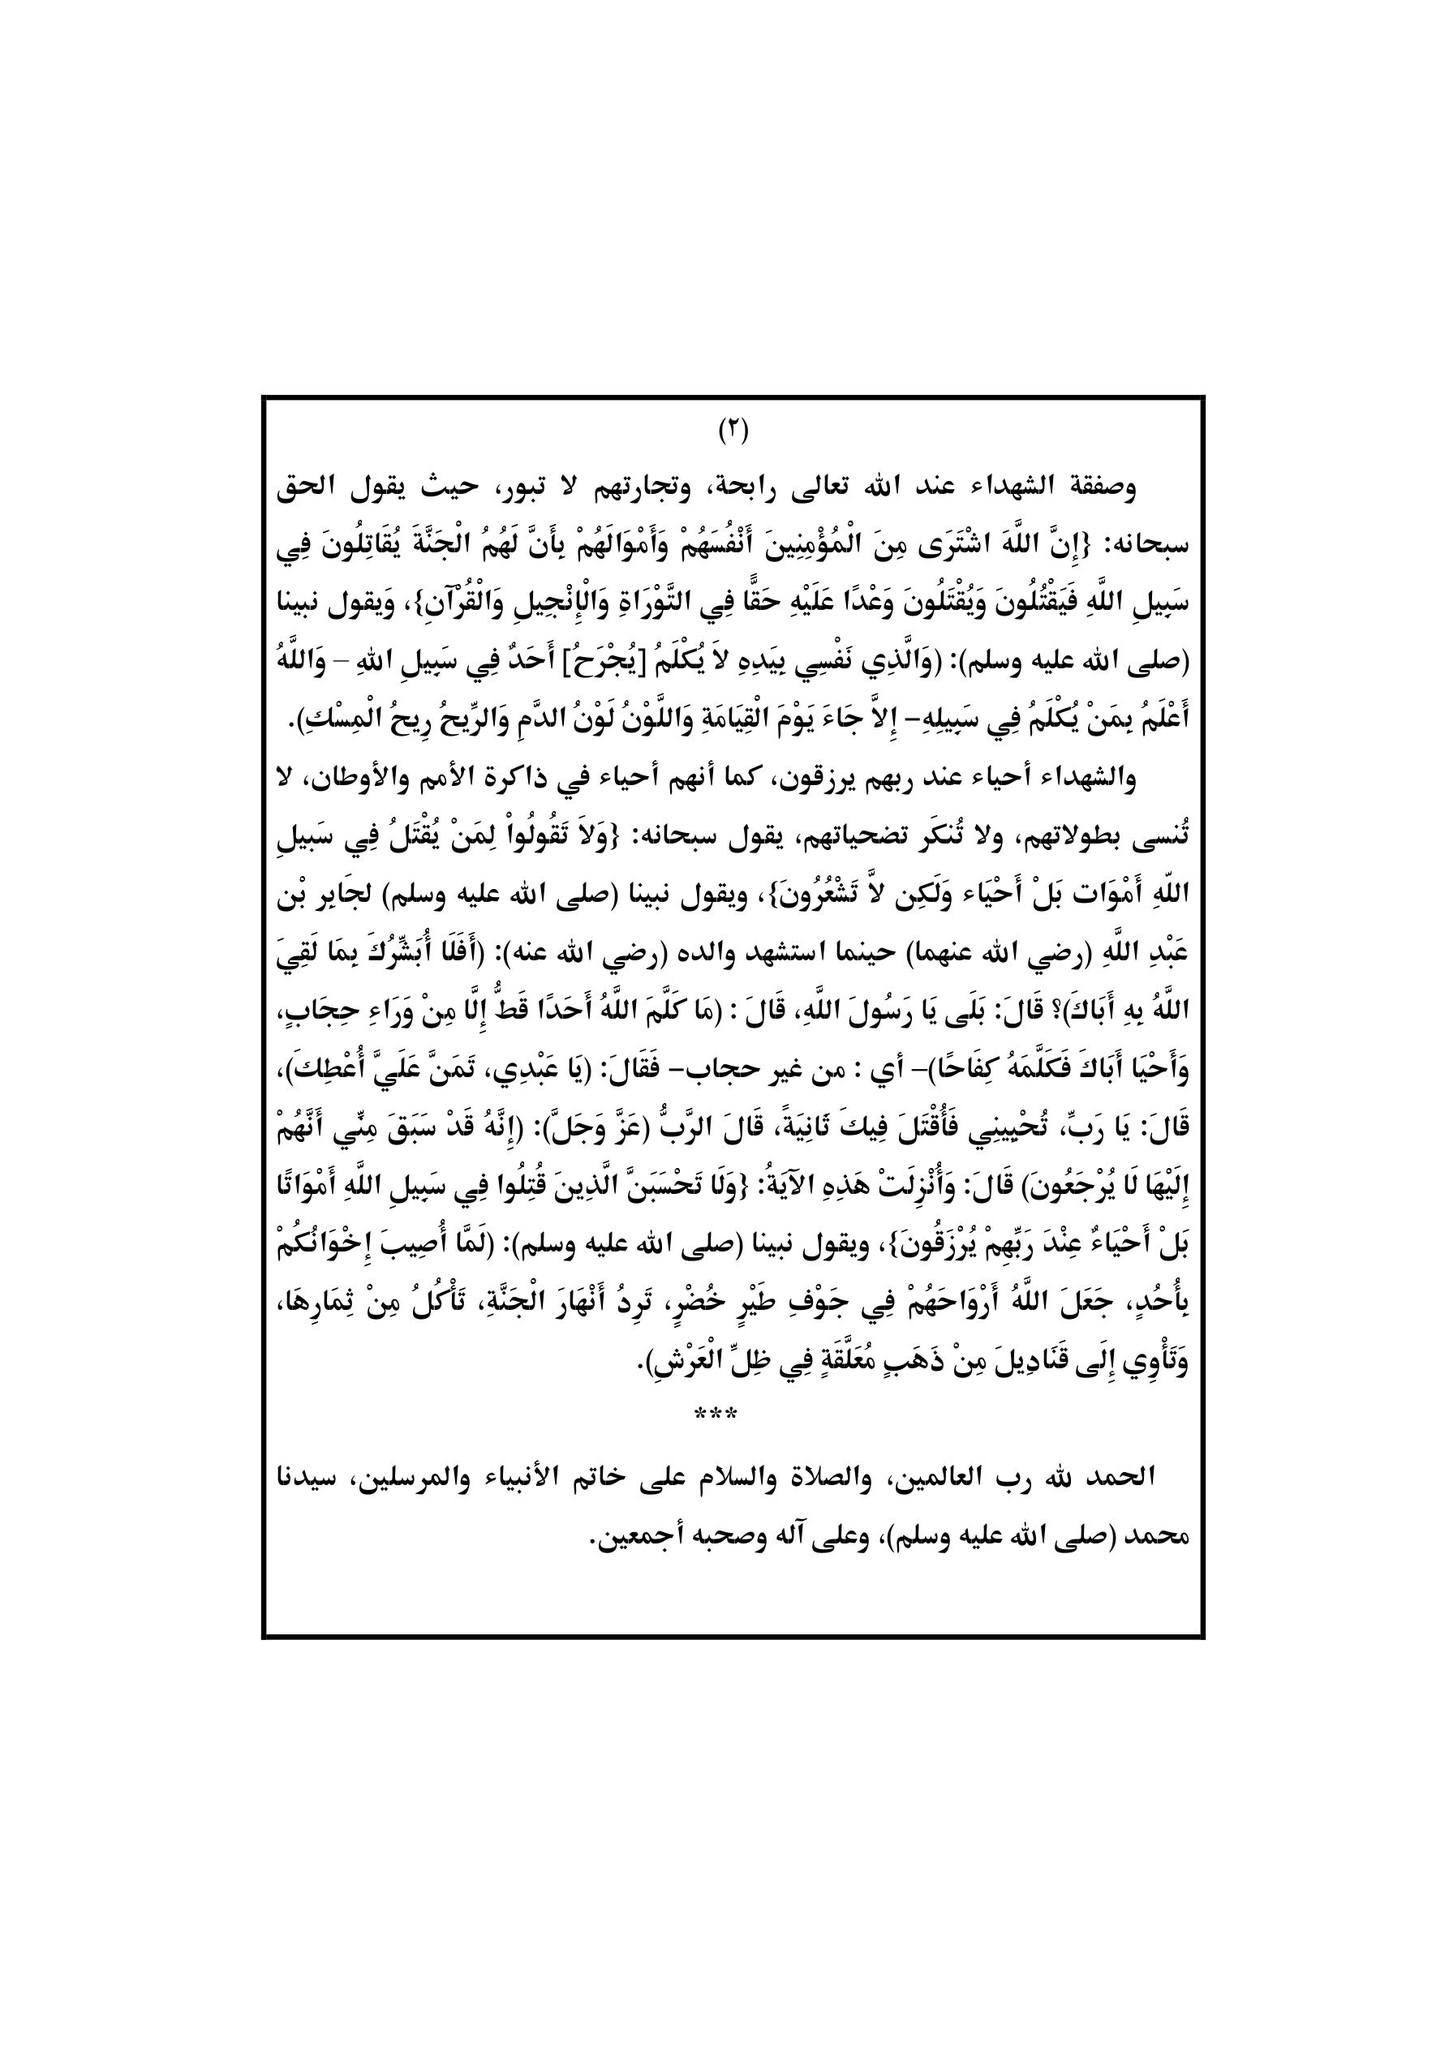 (٢)
وصفقة الشهداء عند الله تعالى رابحة، وتجارتهم لا تبور، حيث يقول الحق
سبحانه: {إِنَّ اللَّهَ اشْتَرَى مِنَ الْمُؤْمِنِينَ أَنْفُسَهُمْ وَأَمْوَالَهُمْ بِأَنَّ لَهُمُ الْجَنَّةَ يُقَاتِلُونَ فِي
سَبِيلِ اللَّهِ فَيَقْتُلُونَ وَيُقْتَلُونَ وَعْدًا عَلَيْهِ حَقًّا فِي التَّوْرَاةِ وَالْإِنْجِيلِ وَالْقُرْآنِ}، وَيقول نبينا
(صلى الله عليه وسلم): (وَالَّذِي نَفْسِي بِيَدِهِ لاَ يُكْلَمُ [يُجْرَحُ] أَحَدٌ فِي سَبِيلِ اللهِ – وَاللَّهُ
أَعْلَمُ بِمَنْ يُكْلَمُ فِي سَبِيلِهِ– إِلاَّ جَاءَ يَوْمَ الْقِيَامَةِ وَاللَّوْنُ لَوْنُ الدَّمِ وَالرِّيحُ رِيحُ الْمِسْكِ).
والشهداء أحياء عند ربهم يرزقون، كما أنهم أحياء في ذاكرة الأمم والأوطان، لا
تُنسى بطولاتهم، ولا تُنكَر تضحياتهم، يقول سبحانه: {وَلاَ تَقُولُواْ لِمَنْ يُقْتَلُ فِي سَبيلِ
اللّهِ أَمْوَات بَلْ أَحْيَاء وَلَكِن لاَّ تَشْعُرُونَ}، ويقول نبينا (صلى الله عليه وسلم) لجَابِر بْن
عَبْدِ اللَّهِ (رضي الله عنهما) حينما استشهد والده (رضي الله عنه): (أَفَلَا أُبَشِّرُكَ بِمَا لَقِيَ
اللَّهُ بِهِ أَبَاكَ)؟ قَالَ: بَلَى يَا رَسُولَ اللَّهِ، قَالَ : (مَا كَلَّمَ اللَّهُ أَحَدًا قَطُّ إِلَّا مِنْ وَرَاءِ حِجَابٍ،
وَأَحْيَا أَبَاكَ فَكَلَّمَهُ كِفَاحًا)– أي : من غير حجاب– فَقَالَ: (يَا عَبْدِي، تَمَنَّ عَلَيَّ أُعْطِكَ)،
قَالَ: يَا رَبِّ، تُحْيِينِي فَأُقْتَلَ فِيكَ ثَانِيَةً، قَالَ الرَّبُّ (عَزَّ وَجَلَّ): (إِنَّهُ قَدْ سَبَقَ مِنِّي أَنَّهُمْ
إِلَيْهَا لَا يُرْجَعُونَ) قَالَ: وَأُنْزِلَتْ هَذِهِ الآيَةُ: {وَلَا تَحْسَبَنَّ الَّذِينَ قُتِلُوا فِي سَبِيلِ اللَّهِ أَمْوَاتًا
بَلْ أَحْيَاءٌ عِنْدَ رَبِّهِمْ يُرْزَقُونَ}، ويقول نبينا (صلى الله عليه وسلم): (لَمَّا أُصِيبَ إِخْوَانُكُمْ
بِأُحُدٍ، جَعَلَ اللَّهُ أَرْوَاحَهُمْ فِي جَوْفِ طَيْرٍ خُضْرٍ، تَرِدُ أَنْهَارَ الْجَنَّةِ، تَأْكُلُ مِنْ ثِمَارِهَا،
وَتَأْوِي إِلَى قَنَادِيلَ مِنْ ذَهَبٍ مُعَلَّقَةٍ فِي ظِلِّ الْعَرْشِ).
***
الحمد لله رب العالمين، والصلاة والسلام على خاتم الأنبياء والمرسلين، سيدنا
محمد (صلى الله عليه وسلم)، وعلى آله وصحبه أجمعين.